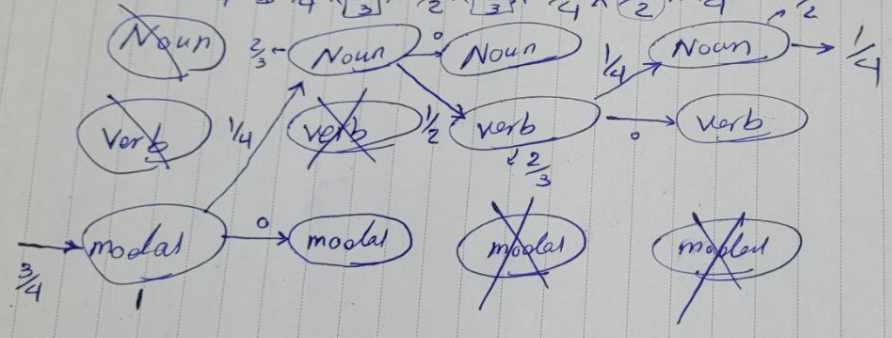 Noun 2/3 Noun 0 Noun 1/4 Noun 1/2 1/4
Verb 1/4 verb 1/2 verb 0 verb
2/3
3/4 modal 0 modal modal modal
1